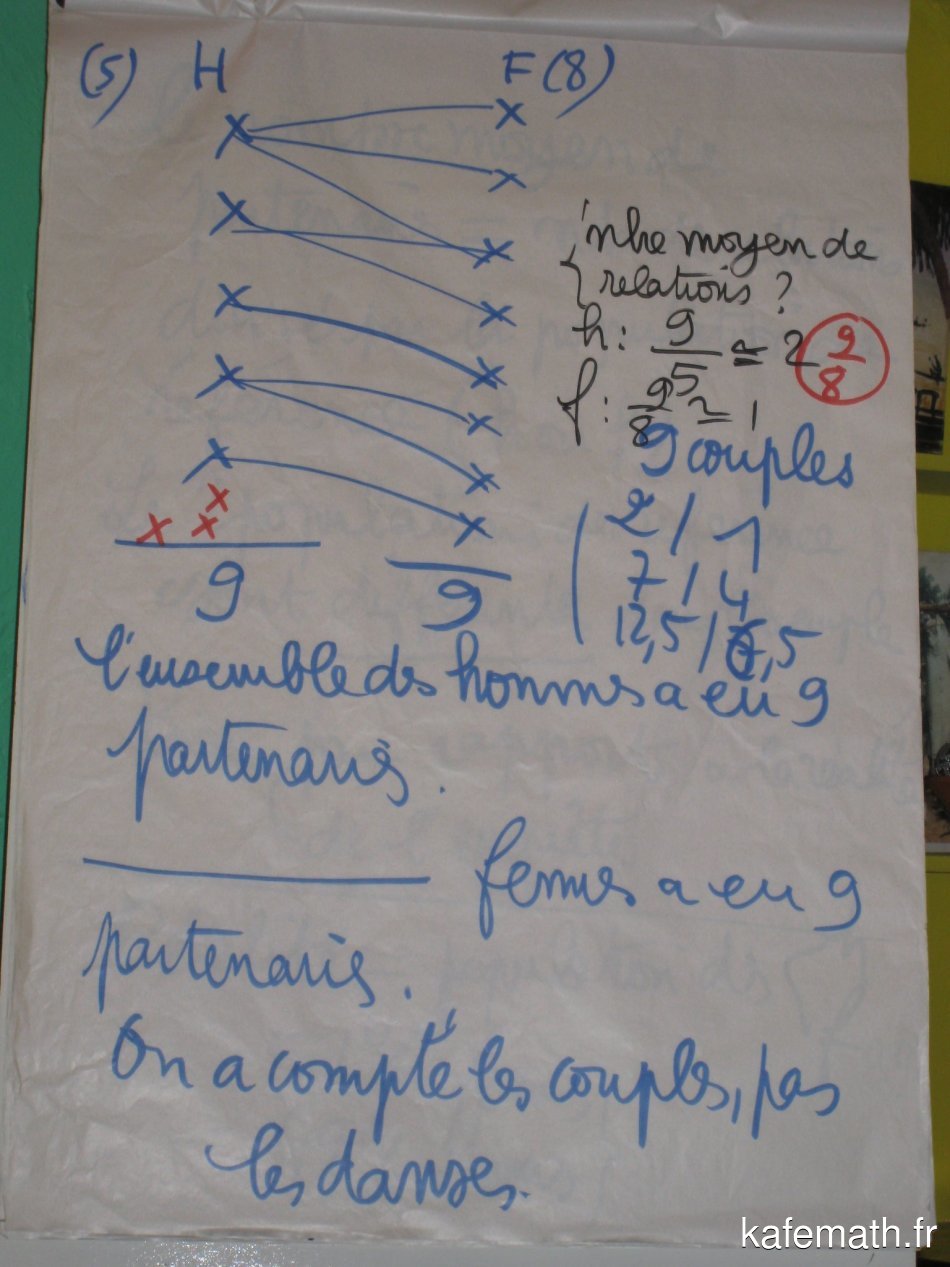 (5) H F (8)
'nbre moyen de
relations ?
h: 9/5 ≃ 2 9/8
f: 9/8 ≃ 1
9 couples
2 / 1
7 / 4
12,5 / 6,5
9 9
l'ensemble des hommes a eu 9
partenaires.
femmes a eu 9
partenaires.
On a compté les couples, pas
les danses.
kafemath.fr